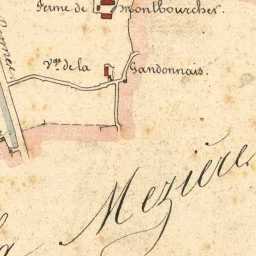 Ferme de Montbourcher
Vge. de la Gandonnais.
la Mezière